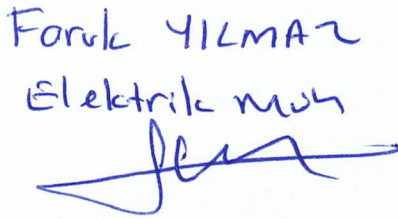 Faruk YILMAZ
Elektrik Müh